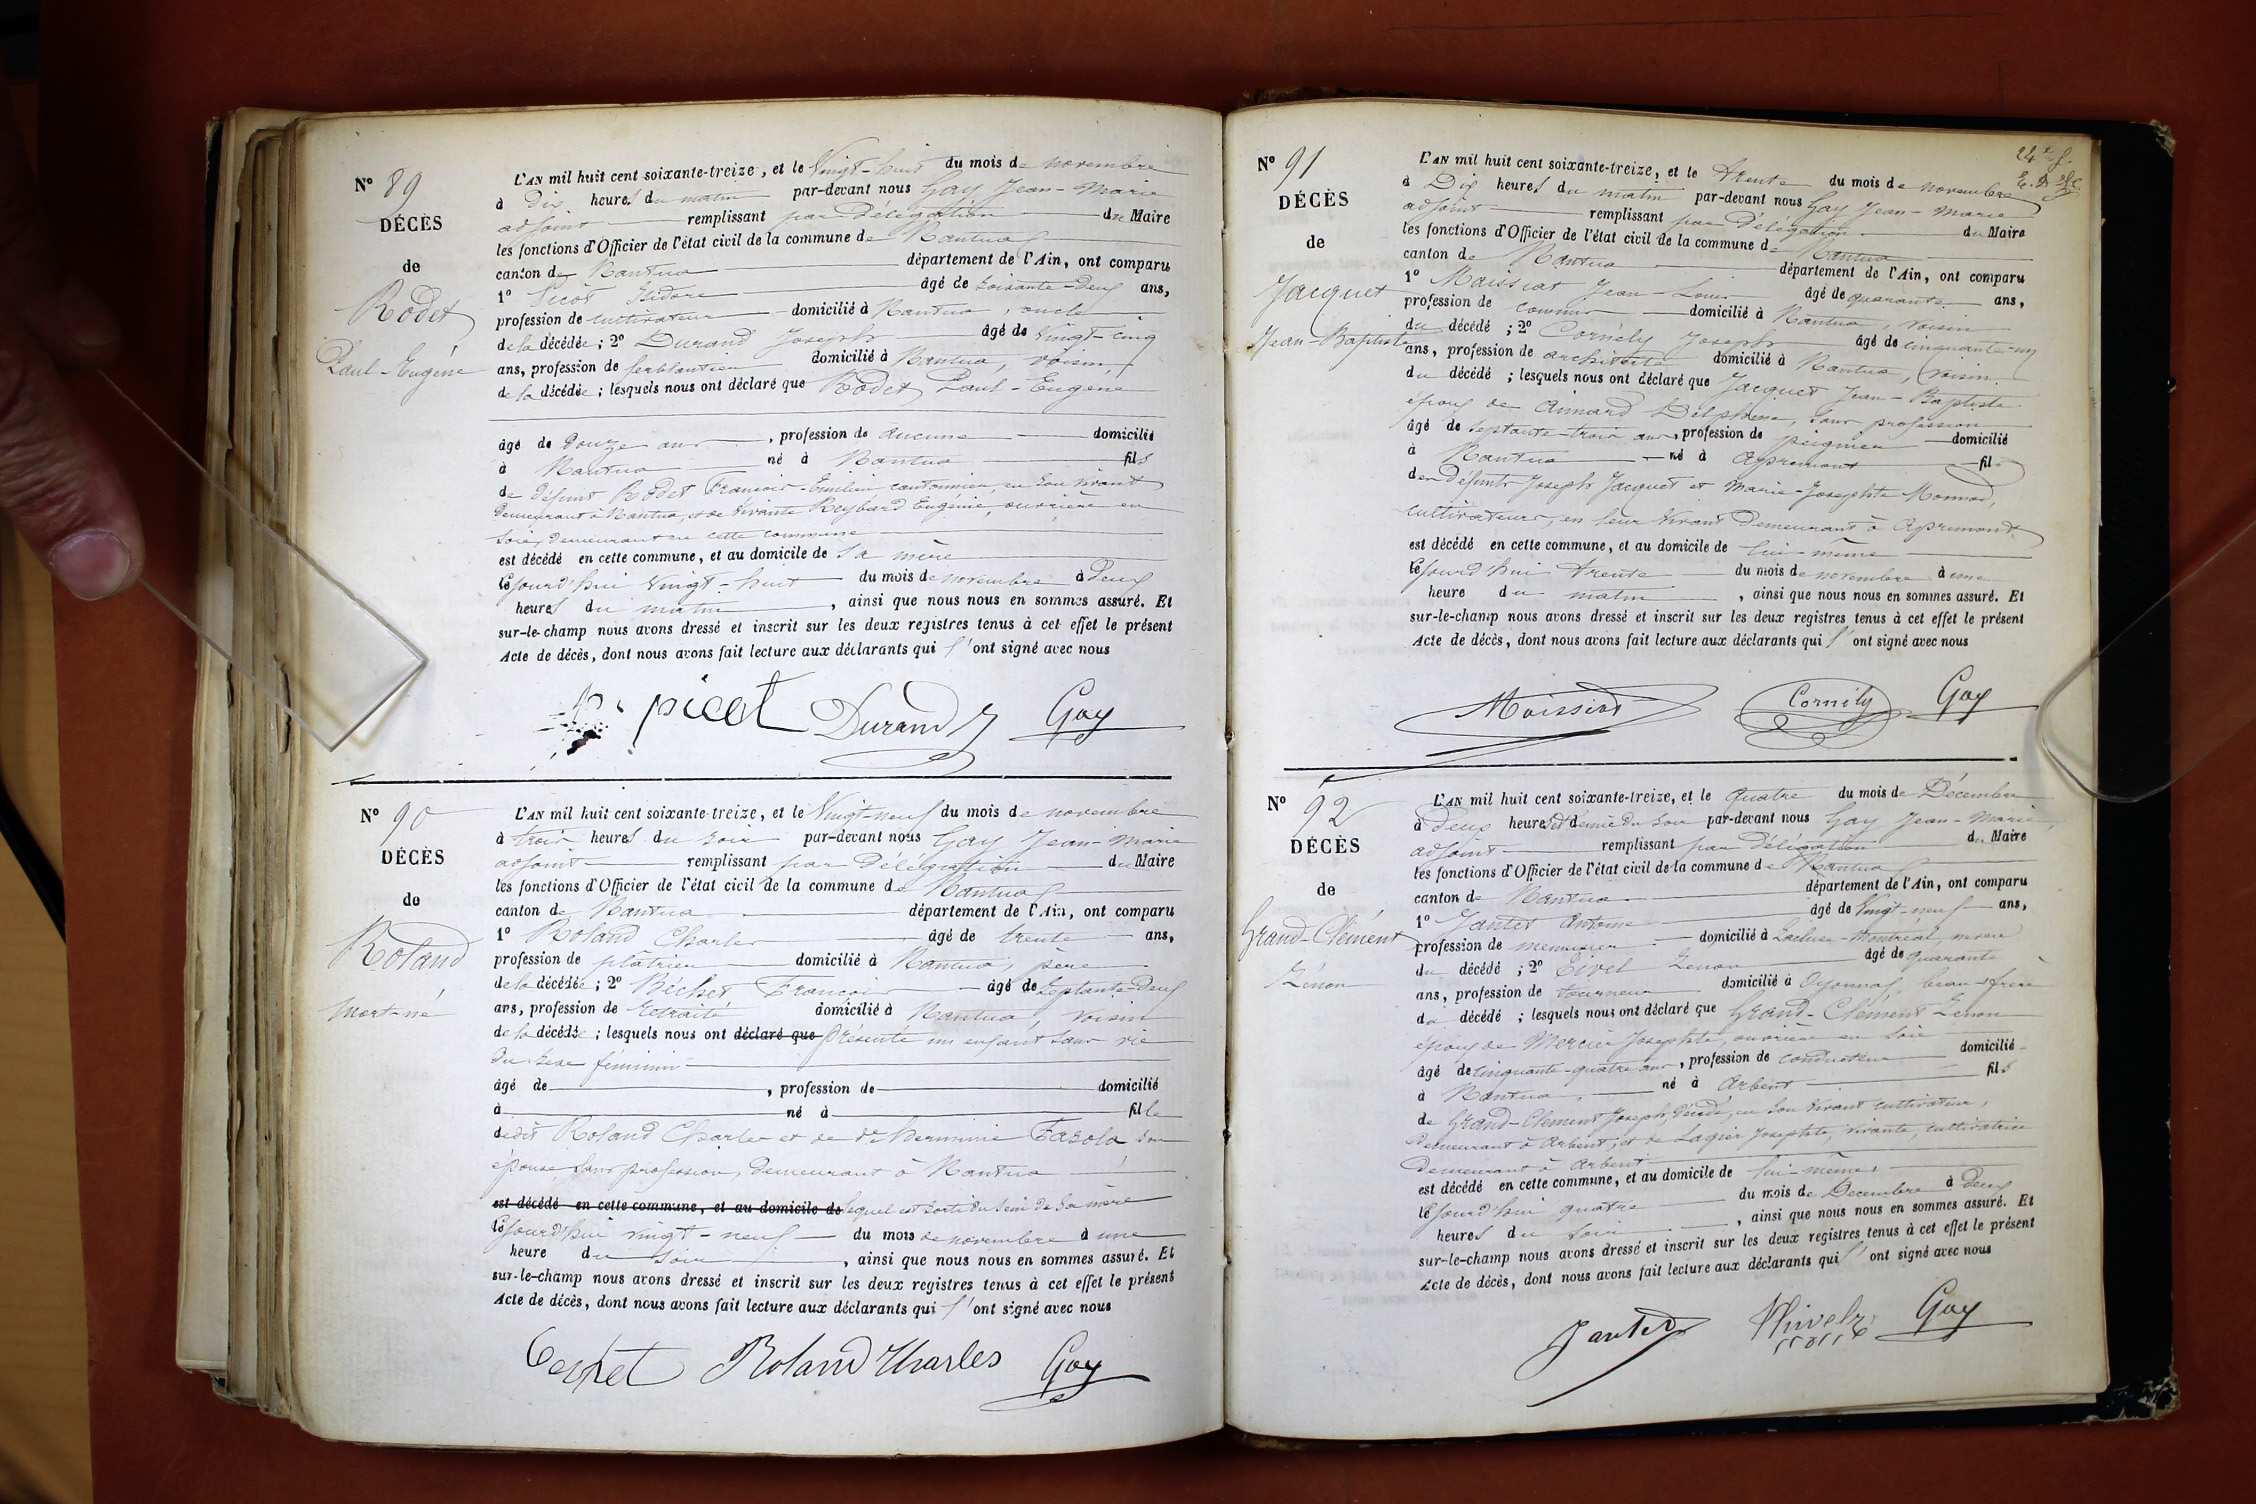 N° 89
DÉCÈS
de
Rodet
Paul-Eugène
L'AN mil huit cent soixante-treize, et le Vingt-huit du mois de novembre
à Dix heures du matin par-devant nous Gay Jean-Marie
adjoint remplissant par Délégation du Maire
les fonctions d'Officier de l'état civil de la commune de Nantua
canton de Nantua département de l'Ain, ont comparu
1° Picot Isidore âgé de soixante-deux ans,
profession de cultivateur domicilié à Nantua, oncle
de la décédée ; 2° Durand Joseph âgé de Vingt-cinq
ans, profession de ferblantier domicilié à Nantua, voisin,
de la décédée ; lesquels nous ont déclaré que Rodet Paul-Eugène
âgé de Douze ans, profession de aucune domicilié
à Nantua né à Nantua fils
de défunt Rodet François-Emilien cantonnier, en son vivant
demeurant à Nantua, et de vivante Reybard Eugénie, ouvrière en
soie, demeurant en cette commune
est décédé en cette commune, et au domicile de sa mère
cejourd'hui vingt-huit du mois de novembre à Deux
heures du matin, ainsi que nous nous en sommes assuré. Et
sur-le-champ nous avons dressé et inscrit sur les deux registres tenus à cet effet le présent
Acte de décès, dont nous avons fait lecture aux déclarants qui l'ont signé avec nous
picot Durand Gay
N° 90
DÉCÈS
de
Roland
mort-né
L'AN mil huit cent soixante-treize, et le Vingt-neuf du mois de novembre
à trois heures du soir par-devant nous Gay Jean-Marie
adjoint remplissant par Délégation du Maire
les fonctions d'Officier de l'état civil de la commune de Nantua
canton de Nantua département de l'Ain, ont comparu
1° Roland Charles âgé de trente ans,
profession de platrier domicilié à Nantua, père
de la décédée ; 2° Béchet François âgé de septante-deux
ans, profession de retraité domicilié à Nantua, voisin
de la décédée ; lesquels nous ont déclaré que présenté un enfant sans vie
du sexe féminin
âgé de , profession de domicilié
à né à fille
dudit Roland Charles et de de herminie Fasola son
épouse, sans profession, demeurant à Nantua
est décédé en cette commune, et au domicile de lequel est sorti du sein de sa mère
cejourd'hui vingt-neuf du mois de novembre à une
heure du soir, ainsi que nous nous en sommes assuré. Et
sur-le-champ nous avons dressé et inscrit sur les deux registres tenus à cet effet le présent
Acte de décès, dont nous avons fait lecture aux déclarants qui l'ont signé avec nous
Bechet Roland Charles Gay
24e f.
N° 91
DÉCÈS
de
Jacquet
Jean-Baptiste
L'AN mil huit cent soixante-treize, et le trente du mois de novembre
à Dix heures du matin par-devant nous Gay Jean-Marie
adjoint remplissant par Délégation du Maire
les fonctions d'Officier de l'état civil de la commune de Nantua
canton de Nantua département de l'Ain, ont comparu
1° Maissiat Jean-Louis âgé de quarante ans,
profession de commis domicilié à Nantua, voisin
du décédé ; 2° Cornély Joseph âgé de cinquante-un
ans, profession de architecte domicilié à Nantua, voisin
du décédé ; lesquels nous ont déclaré que Jacquet Jean-Baptiste
époux de Aimard Delphine, sans profession
âgé de septante-trois ans, profession de peignier domicilié
à Nantua né à Apremont fils
des défunts Joseph Jacquet et Marie-Josephte Monnod,
cultivateurs, en leur vivant demeurant à Apremont
est décédé en cette commune, et au domicile de lui-même
cejourd'hui trente du mois de novembre à une
heure du matin, ainsi que nous nous en sommes assuré. Et
sur-le-champ nous avons dressé et inscrit sur les deux registres tenus à cet effet le présent
Acte de décès, dont nous avons fait lecture aux déclarants qui l'ont signé avec nous
Maissiat Cornély Gay
N° 92
DÉCÈS
de
Grand-Clément
Zénon
L'AN mil huit cent soixante-treize, et le quatre du mois de Décembre
à Deux heures et demie du soir par-devant nous Gay Jean-Marie,
adjoint remplissant par Délégation du Maire
les fonctions d'Officier de l'état civil de la commune de Nantua
canton de Nantua département de l'Ain, ont comparu
1° Jantet Antoine âgé de Vingt-neuf ans,
profession de menuisier domicilié à Lacluse-Montréal, neveu
du décédé ; 2° Zenon âgé de quarante
ans, profession de tourneur domicilié à Oyonnax, beau-frère
du décédé ; lesquels nous ont déclaré que Grand-Clément Zenon
époux de Mercier Josephte, ouvrière en soie
âgé de cinquante-quatre ans, profession de conducteur domicilié
à Nantua, né à Arbent fils
de Grand-Clément Joseph, décédé, en son vivant cultivateur,
demeurant à Arbent, et de Lagier Josephte, vivante, cultivatrice
demeurant à Arbent
est décédé en cette commune, et au domicile de lui-même
cejourd'hui quatre du mois de Décembre à Deux
heures du soir, ainsi que nous nous en sommes assuré. Et
sur-le-champ nous avons dressé et inscrit sur les deux registres tenus à cet effet le présent
Acte de décès, dont nous avons fait lecture aux déclarants qui l'ont signé avec nous
Jantet Gay